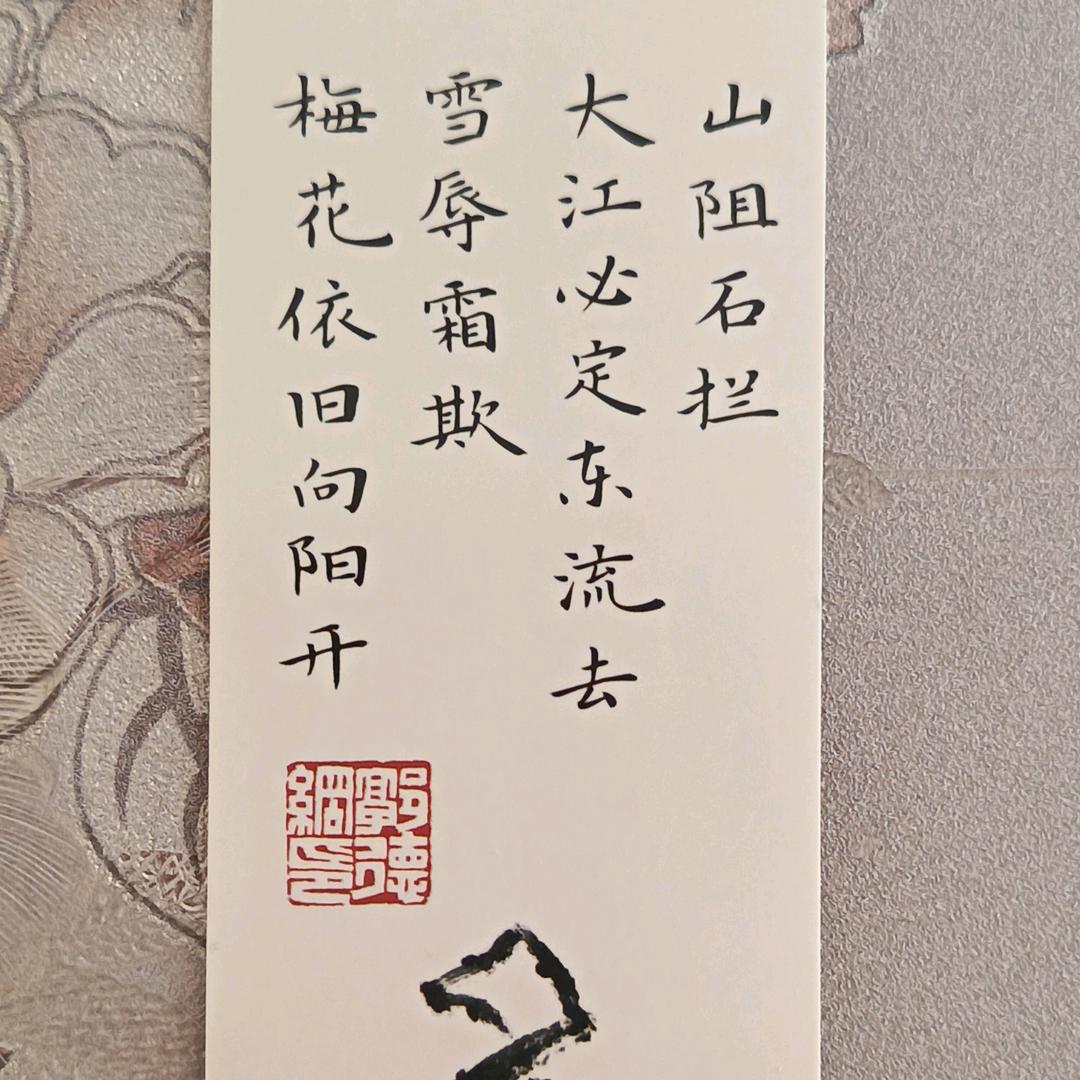 山阻石拦
大江必定东流去
雪辱霜欺
梅花依旧向阳开